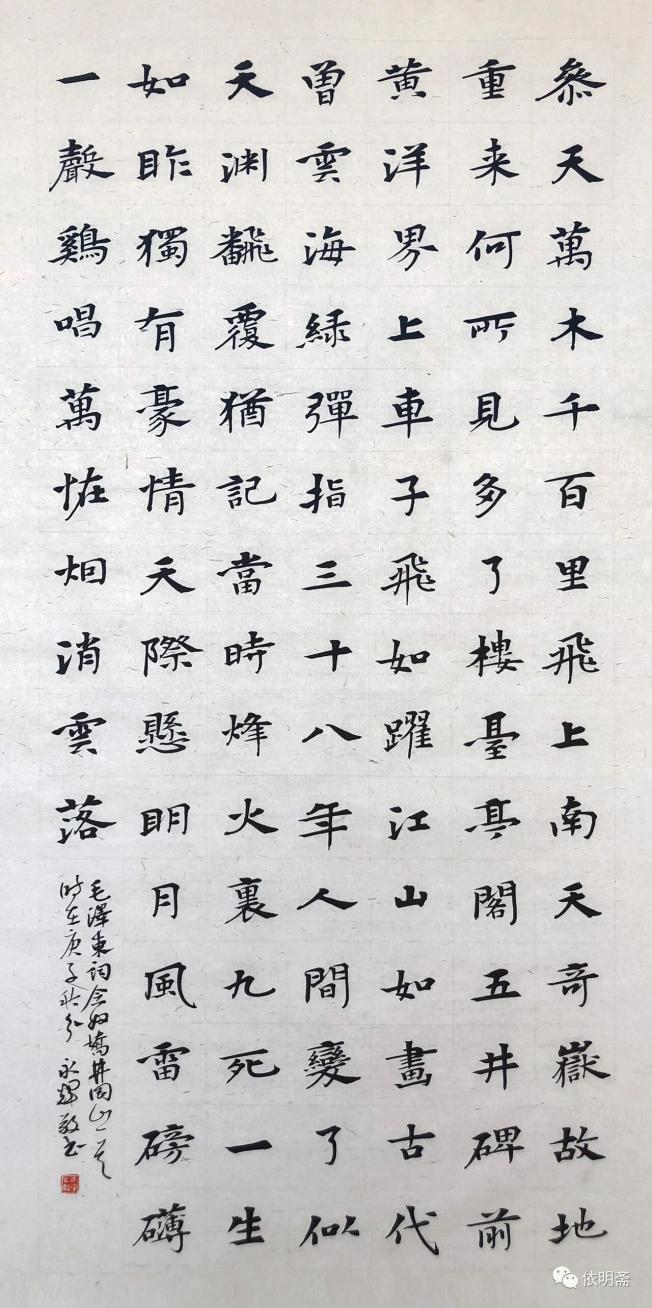 叅天萬木千百里飛上南天奇嶽故地
重来何所見多了樓臺亭閣五井碑前
黄洋界上車子飛如躍江山如畫古代
曾雲海緑彈指三十八年人間變了似
天渊飜覆猶記當時烽火裏九死一生
如昨獨有豪情天際懸明月風雷磅礴
一聲鷄唱萬恠烟消雲落
毛澤東詞念奴嬌井岡山一首
時在庚子秋分 永輝敬书
依明斋